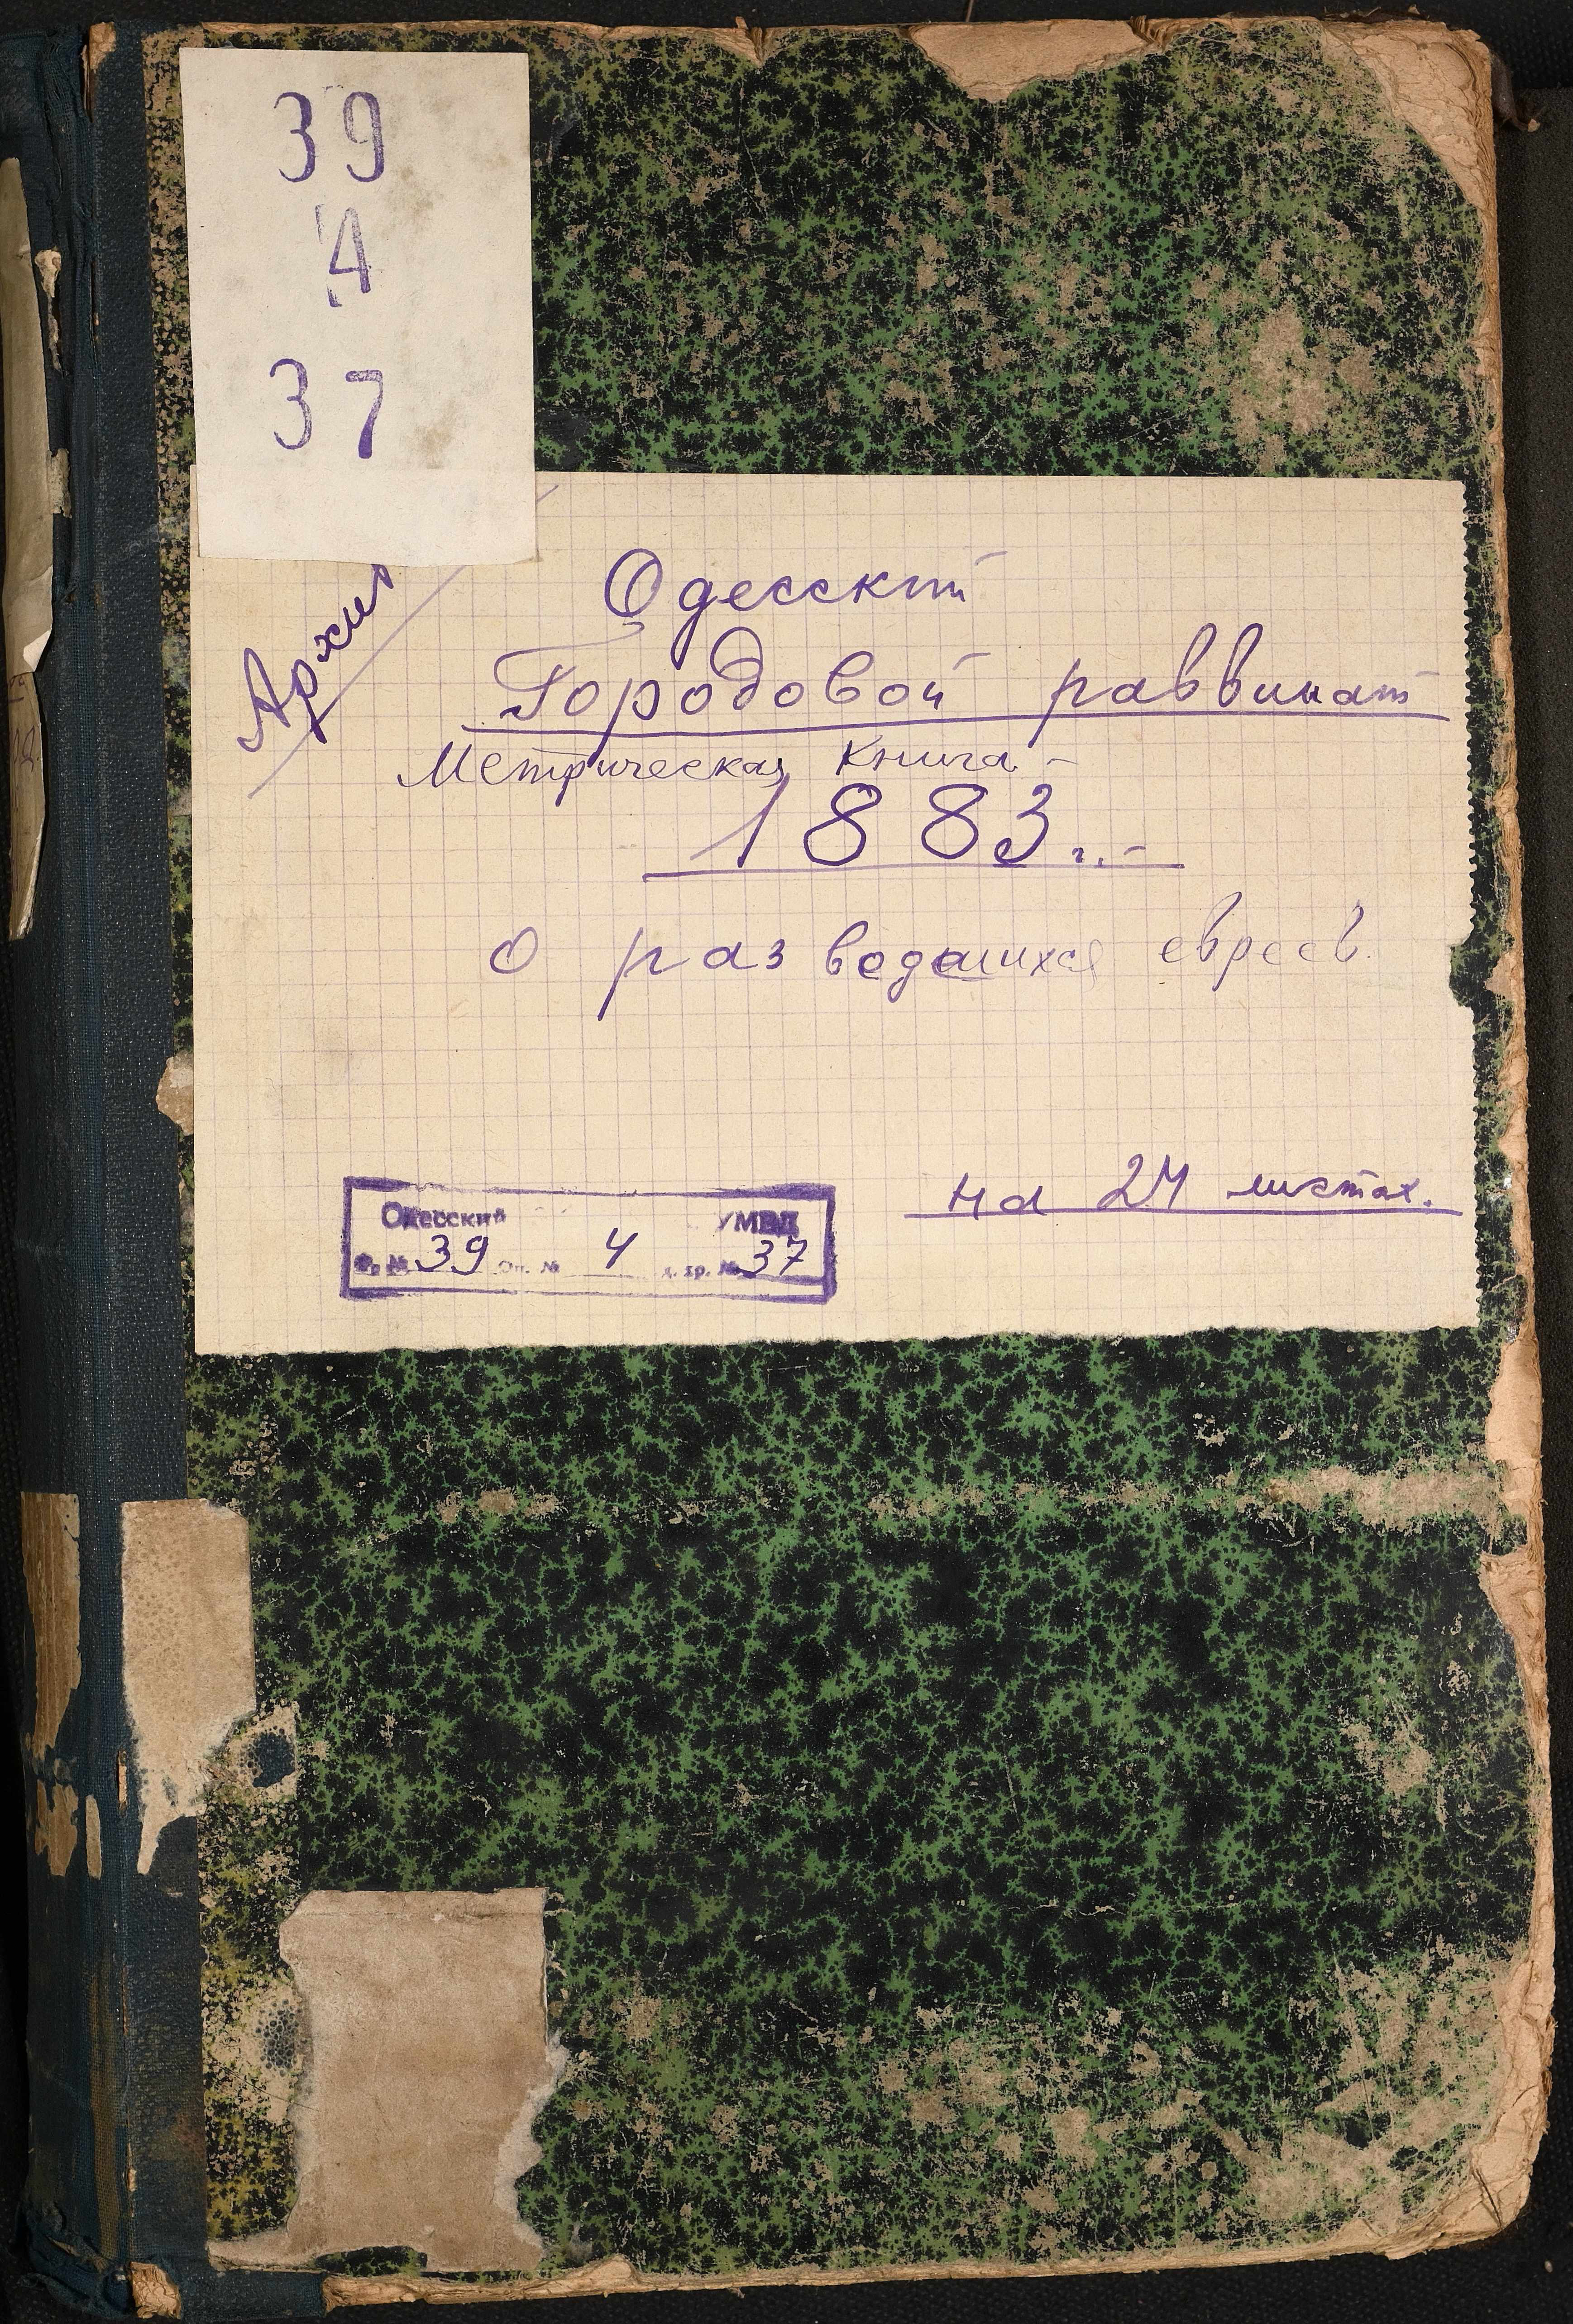 39
4
37
Архив
Одесский
Городовой раввинат
Метрическая книга -
1883 г. -
о разводащихся евреев.
на 24 листах.
Одесский УМВД
Ф. № 39 Оп. № 4 д. хр. № 37